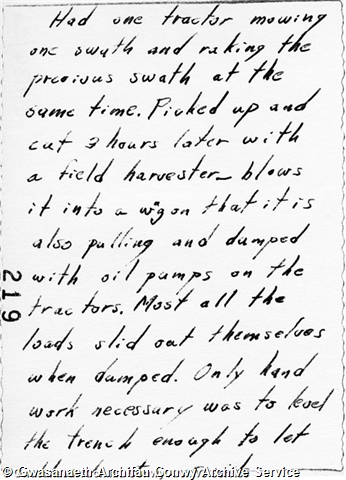 Had one tractor mowing
one swath and raking the
precious swath at the
same time. Picked up and
cut 3 hours later with
a field harvester_ blows
it into a wgon that it is
also pulling and dumped
with oil pumps on the
tractors. Most all the
loads slid out themselves
when dumped. Only hand
work necessary was to level
the trench enough to let
219
© Gwasanaeth Archifau Conwy/Archive Service